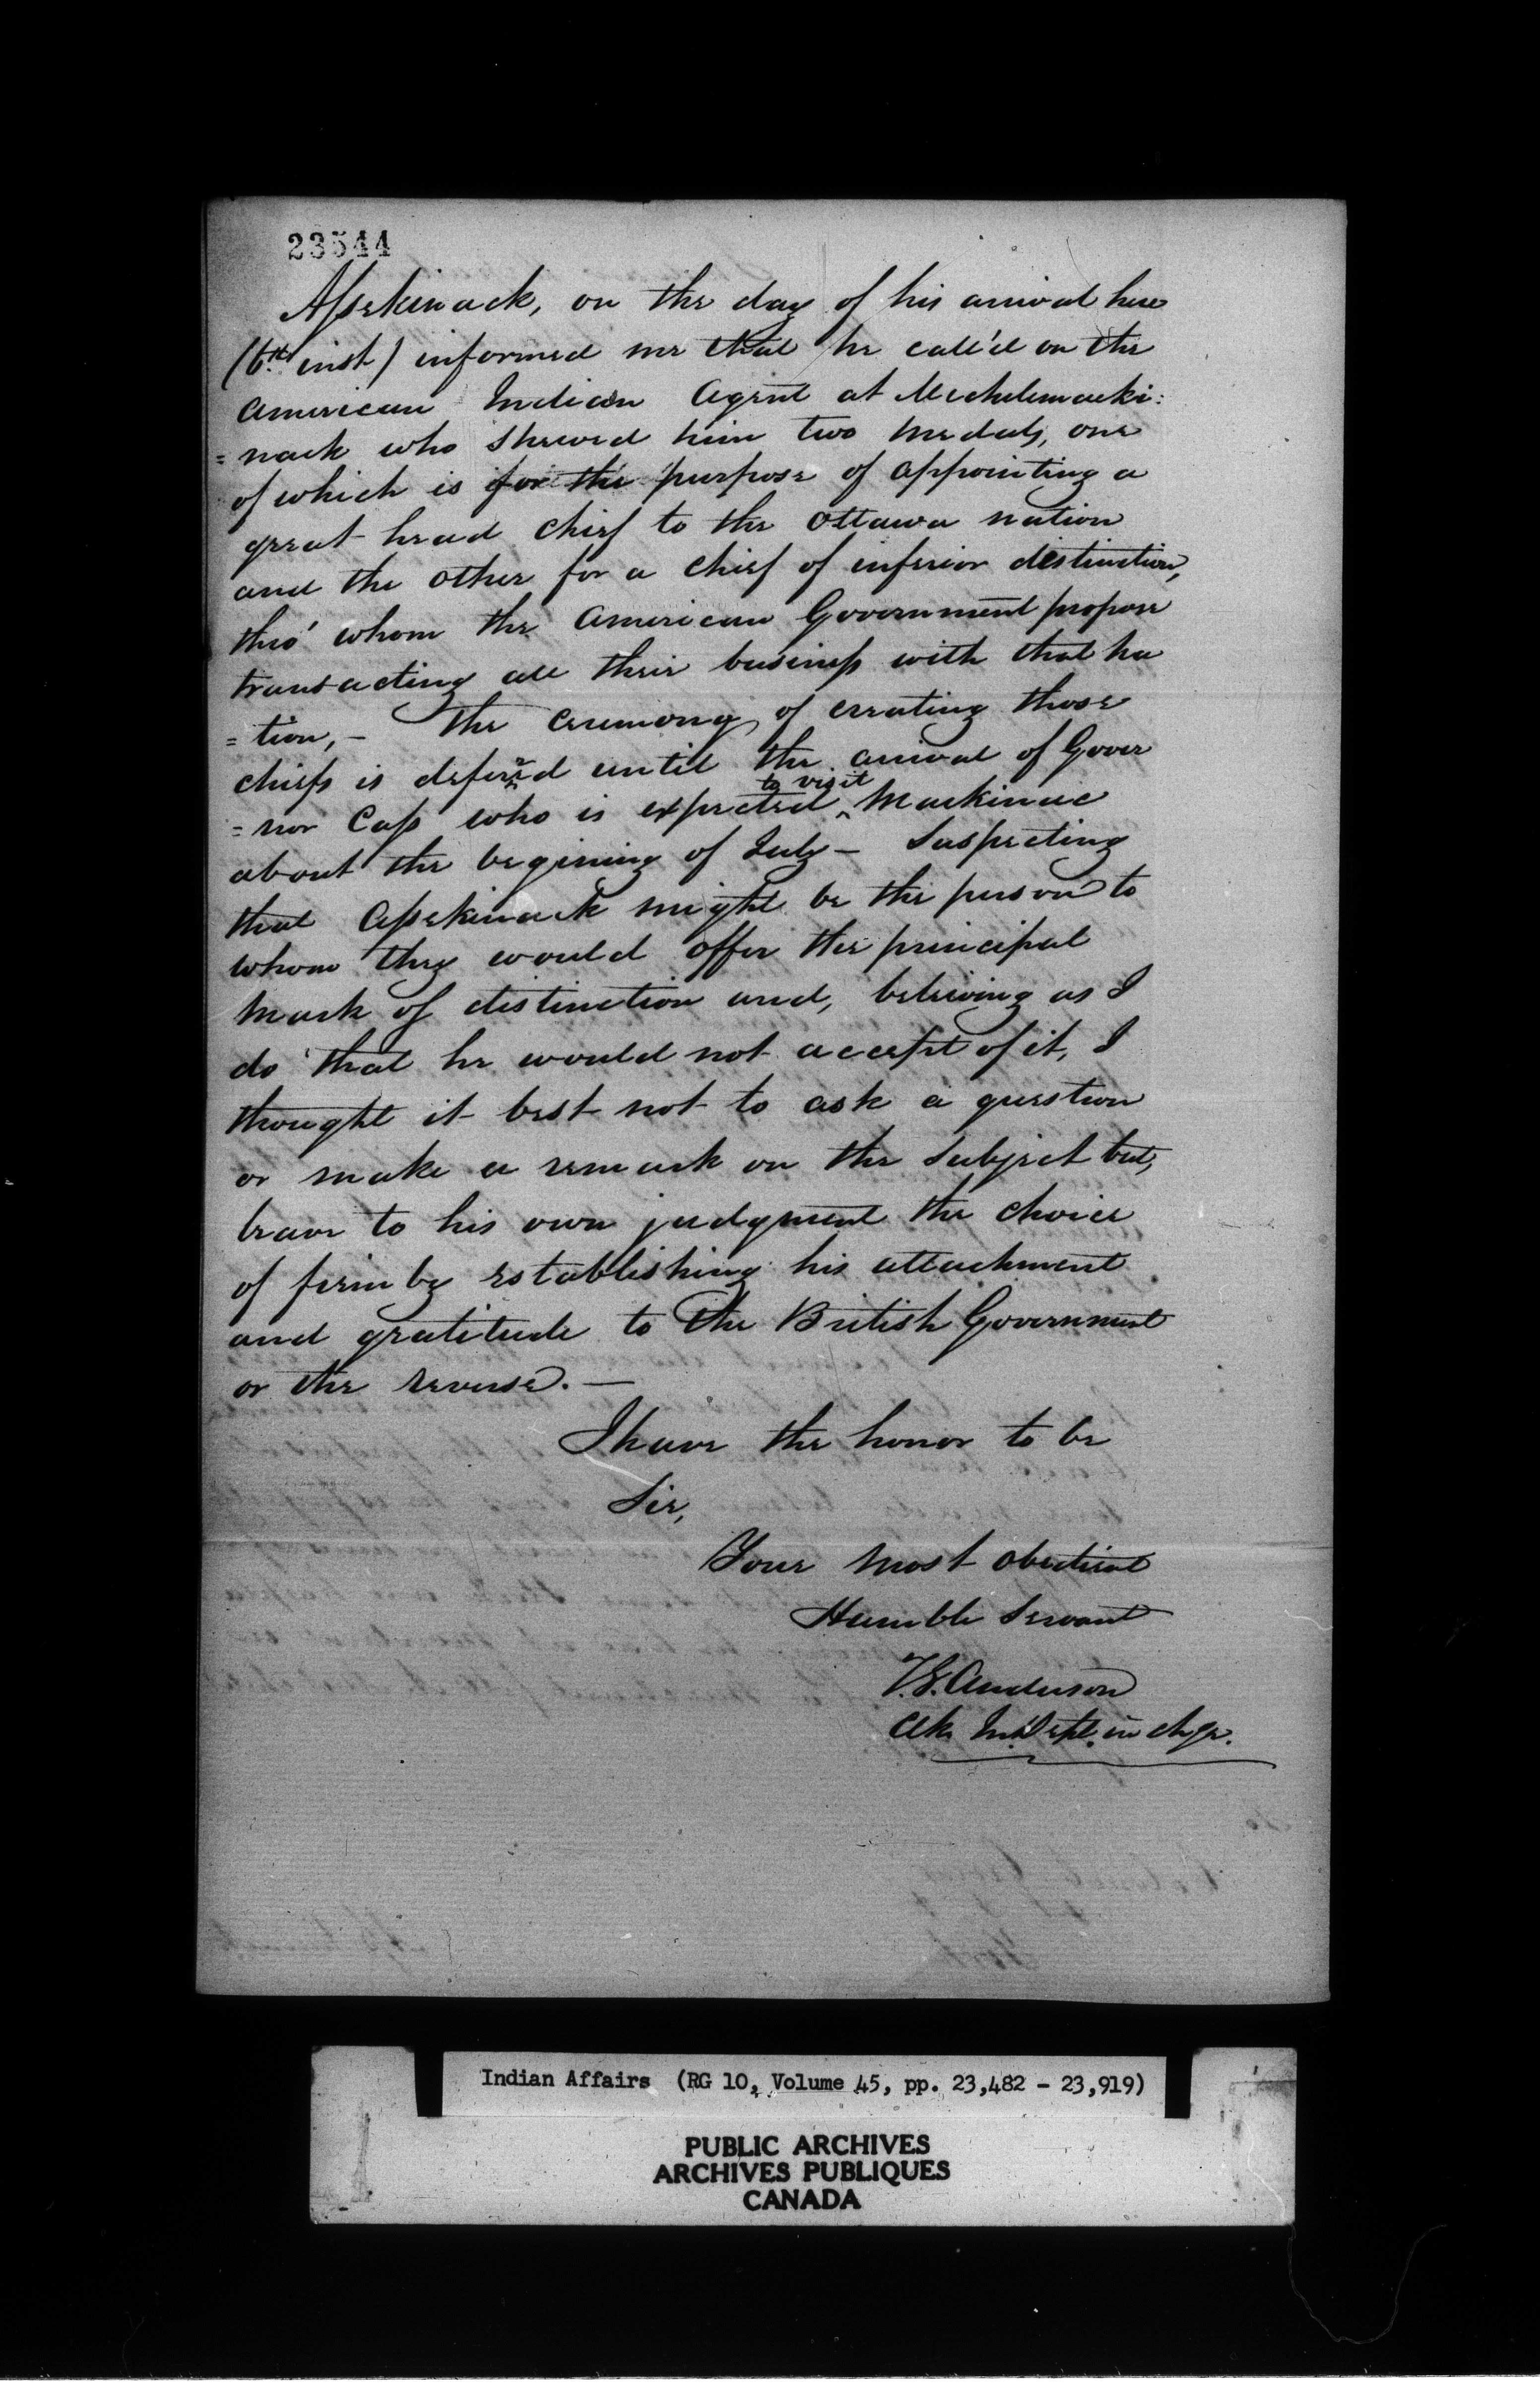 23544
Assekinack, on the day of his arrival here
(6th inst) informed me that he call'd on the
American Indian Agent at Mechelemacki:
=nack who shewed him two medals, one
of which is for the purpose of appointing a
great head chief to the Ottawa nation
and the other for a chief of inferior distinction,
thro' whom the American Government propose
transacting all their business with that na
=tion, - The ceremony of creating those
chiefs is deferred until the arrival of Gover
=nor Cass who is expected to visit Mackinac
about the begining of July - Suspecting
that Assekinack might be the person to
whom they would offer the principal
mark of distinction and, believing as I
do that he would not accept of it, I
thought it best not to ask a question
or make a remark on the subject but,
leave to his own judgment the choice
of firmly establishing his attachment
and gratitude to the British Government
or the reverse. —
I have the honor to be
Sir,
Your most obedient
Humble Servant
T.G. Anderson
Clk In. Dept. in chge.
Indian Affairs (RG 10, Volume 45, pp. 23,482 - 23,919)
PUBLIC ARCHIVES
ARCHIVES PUBLIQUES
CANADA